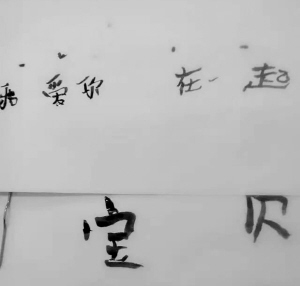 我爱你 在一起
宝贝